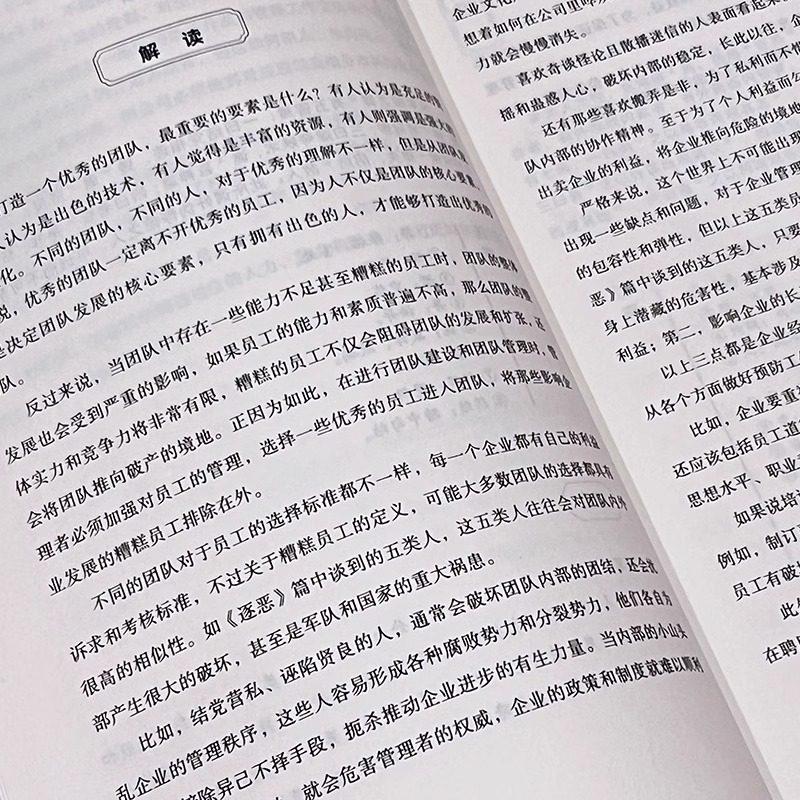 解 读
打造一个优秀的团队，最重要的要素是什么？有人认为是充足的
人认为是出色的技术，有人觉得是丰富的资源，有人则强调是强大的
化。不同的团队，不同的人，对于优秀的理解不一样，但是从团队
说，优秀的团队一定离不开优秀的员工，因为人不仅是团队的核心要素，
是决定团队发展的核心要素，只有拥有出色的人，才能够打造出优秀的
队。
反过来说，当团队中存在一些能力不足甚至糟糕的员工时，团队的整体
发展也会受到严重的影响，如果员工的能力和素质普遍不高，那么团队的整
体实力和竞争力将非常有限，糟糕的员工不仅会阻碍团队的发展和扩张，还
会将团队推向破产的境地。正因为如此，在进行团队建设和团队管理时，管
理者必须加强对员工的管理，选择一些优秀的员工进入团队，将那些影响企
业发展的糟糕员工排除在外。
不同的团队对于员工的选择标准都不一样，每一个企业都有自己的利益
诉求和考核标准，不过关于糟糕员工的定义，可能大多数团队的选择都具有
很高的相似性。如《逐恶》篇中谈到的五类人，这五类人往往会对团队内外
部产生很大的破坏，甚至是军队和国家的重大祸患。
比如，结党营私、诬陷贤良的人，通常会破坏团队内部的团结，还会扰
乱企业的管理秩序，这些人容易形成各种腐败势力和分裂势力，他们各自为
排除异己不择手段，扼杀推动企业进步的有生力量。当内部的小山头
就会危害管理者的权威，企业的政策和制度就难以顺利
企业文化
想着如何在公司里
力就会慢慢消失。
喜欢奇谈怪论且散播迷信的人表面看起来
摇和蛊惑人心，破坏内部的稳定，长此以往，企
还有那些喜欢搬弄是非，为了私利而不惜
队内部的协作精神。至于为了个人利益而勾
出卖企业的利益，将企业推向危险的境地
严格来说，这个世界上不可能出现
出现一些缺点和问题，对于企业管理
的包容性和弹性，但以上这五类员
恶》篇中谈到的这五类人，只要
身上潜藏的危害性，基本涉及
利益；第二，影响企业的长
以上三点都是企业经
从各个方面做好预防工
比如，企业要重
还应该包括员工道
思想水平、职业
如果说培
例如，制订
员工有破
此
在聘